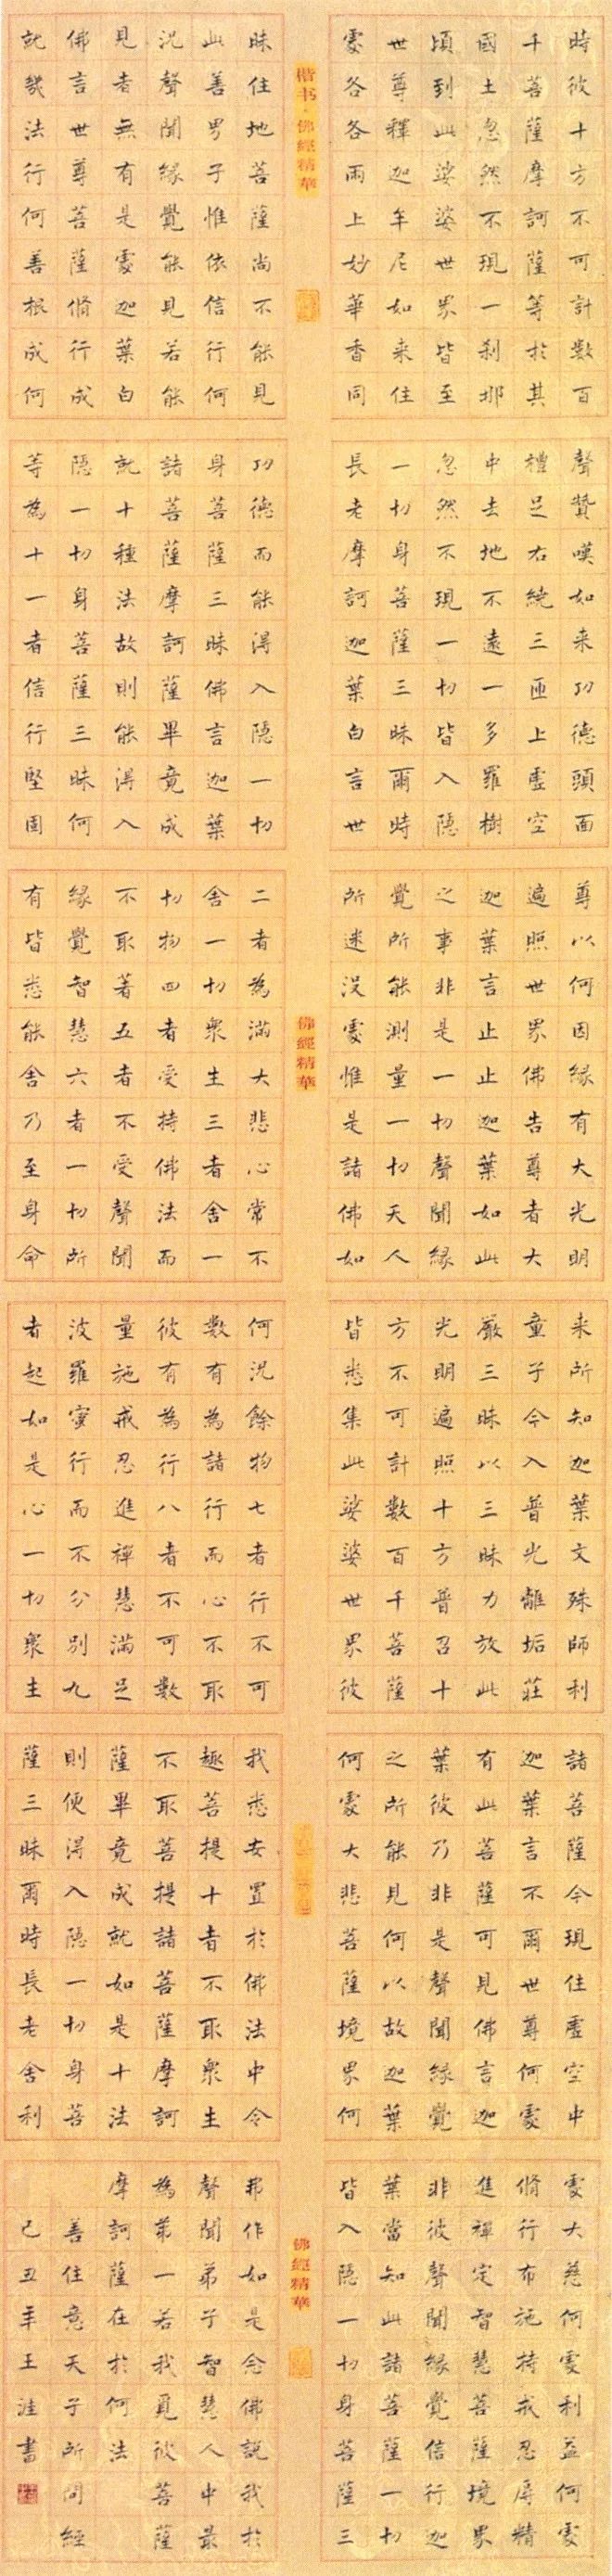 時彼十方不可計數百
千菩薩摩訶薩等於其
國土忽然不現一剎那
頃到此娑婆世界皆至
世尊釋迦牟尼如来住
處各各雨上妙華香同
聲贊嘆如来功德頭面
禮足右繞三匝上虛空
中去地不遠一多羅樹
忽然不現一切皆入隱
一切身菩薩三昧爾時
長老摩訶迦葉白言世
尊以何因緣有大光明
遍照世界佛告尊者大
迦葉言止止迦葉如此
之事非是一切聲聞緣
覺所能測量一切天人
所迷沒處惟是諸佛如
来所知迦葉文殊師利
童子今入普光離垢莊
嚴三昧以三昧力放此
光明遍照十方普召十
方不可計數百千菩薩
皆悉集此娑婆世界彼
諸菩薩今現住虛空中
迦葉言不爾世尊何處
有此菩薩可見佛言迦
葉彼乃非是聲聞緣覺
之所能見何以故迦葉
何處大悲菩薩境界何
處大慈何處利益何處
脩行布施持戒忍辱精
進禪定智慧菩薩境界
非彼聲聞緣覺信行迦
葉當知此諸菩薩一切
皆入隱一切身菩薩三
楷书·佛經精華
佛經精華
佛經精華
昧住地菩薩尚不能見
此善男子惟依信行何
況聲聞緣覺能見若能
見者無有是處迦葉白
佛言世尊菩薩脩行成
就幾法行何善根成何
功德而能得入隱一切
身菩薩三昧佛言迦葉
諸菩薩摩訶薩畢竟成
就十種法故則能得入
隱一切身菩薩三昧何
等為十一者信行堅固
二者為滿大悲心常不
舍一切眾生三者舍一
切物四者受持佛法而
不取著五者不受聲聞
緣覺智慧六者一切所
有皆悉能舍乃至身命
何況餘物七者行不可
數有為諸行而心不取
彼有為行八者不可數
量施戒忍進禪慧滿足
波羅蜜行而不分別九
者起如是心一切眾生
我悉安置於佛法中令
趣菩提十者不取眾生
不取菩提諸菩薩摩訶
薩畢竟成就如是十法
則便得入隱一切身菩
薩三昧爾時長老舍利
弗作如是念佛說我於
聲聞弟子智慧人中最
為第一若我覓彼菩薩
摩訶薩在於何法
善住意天子所問經
己丑年王洼書